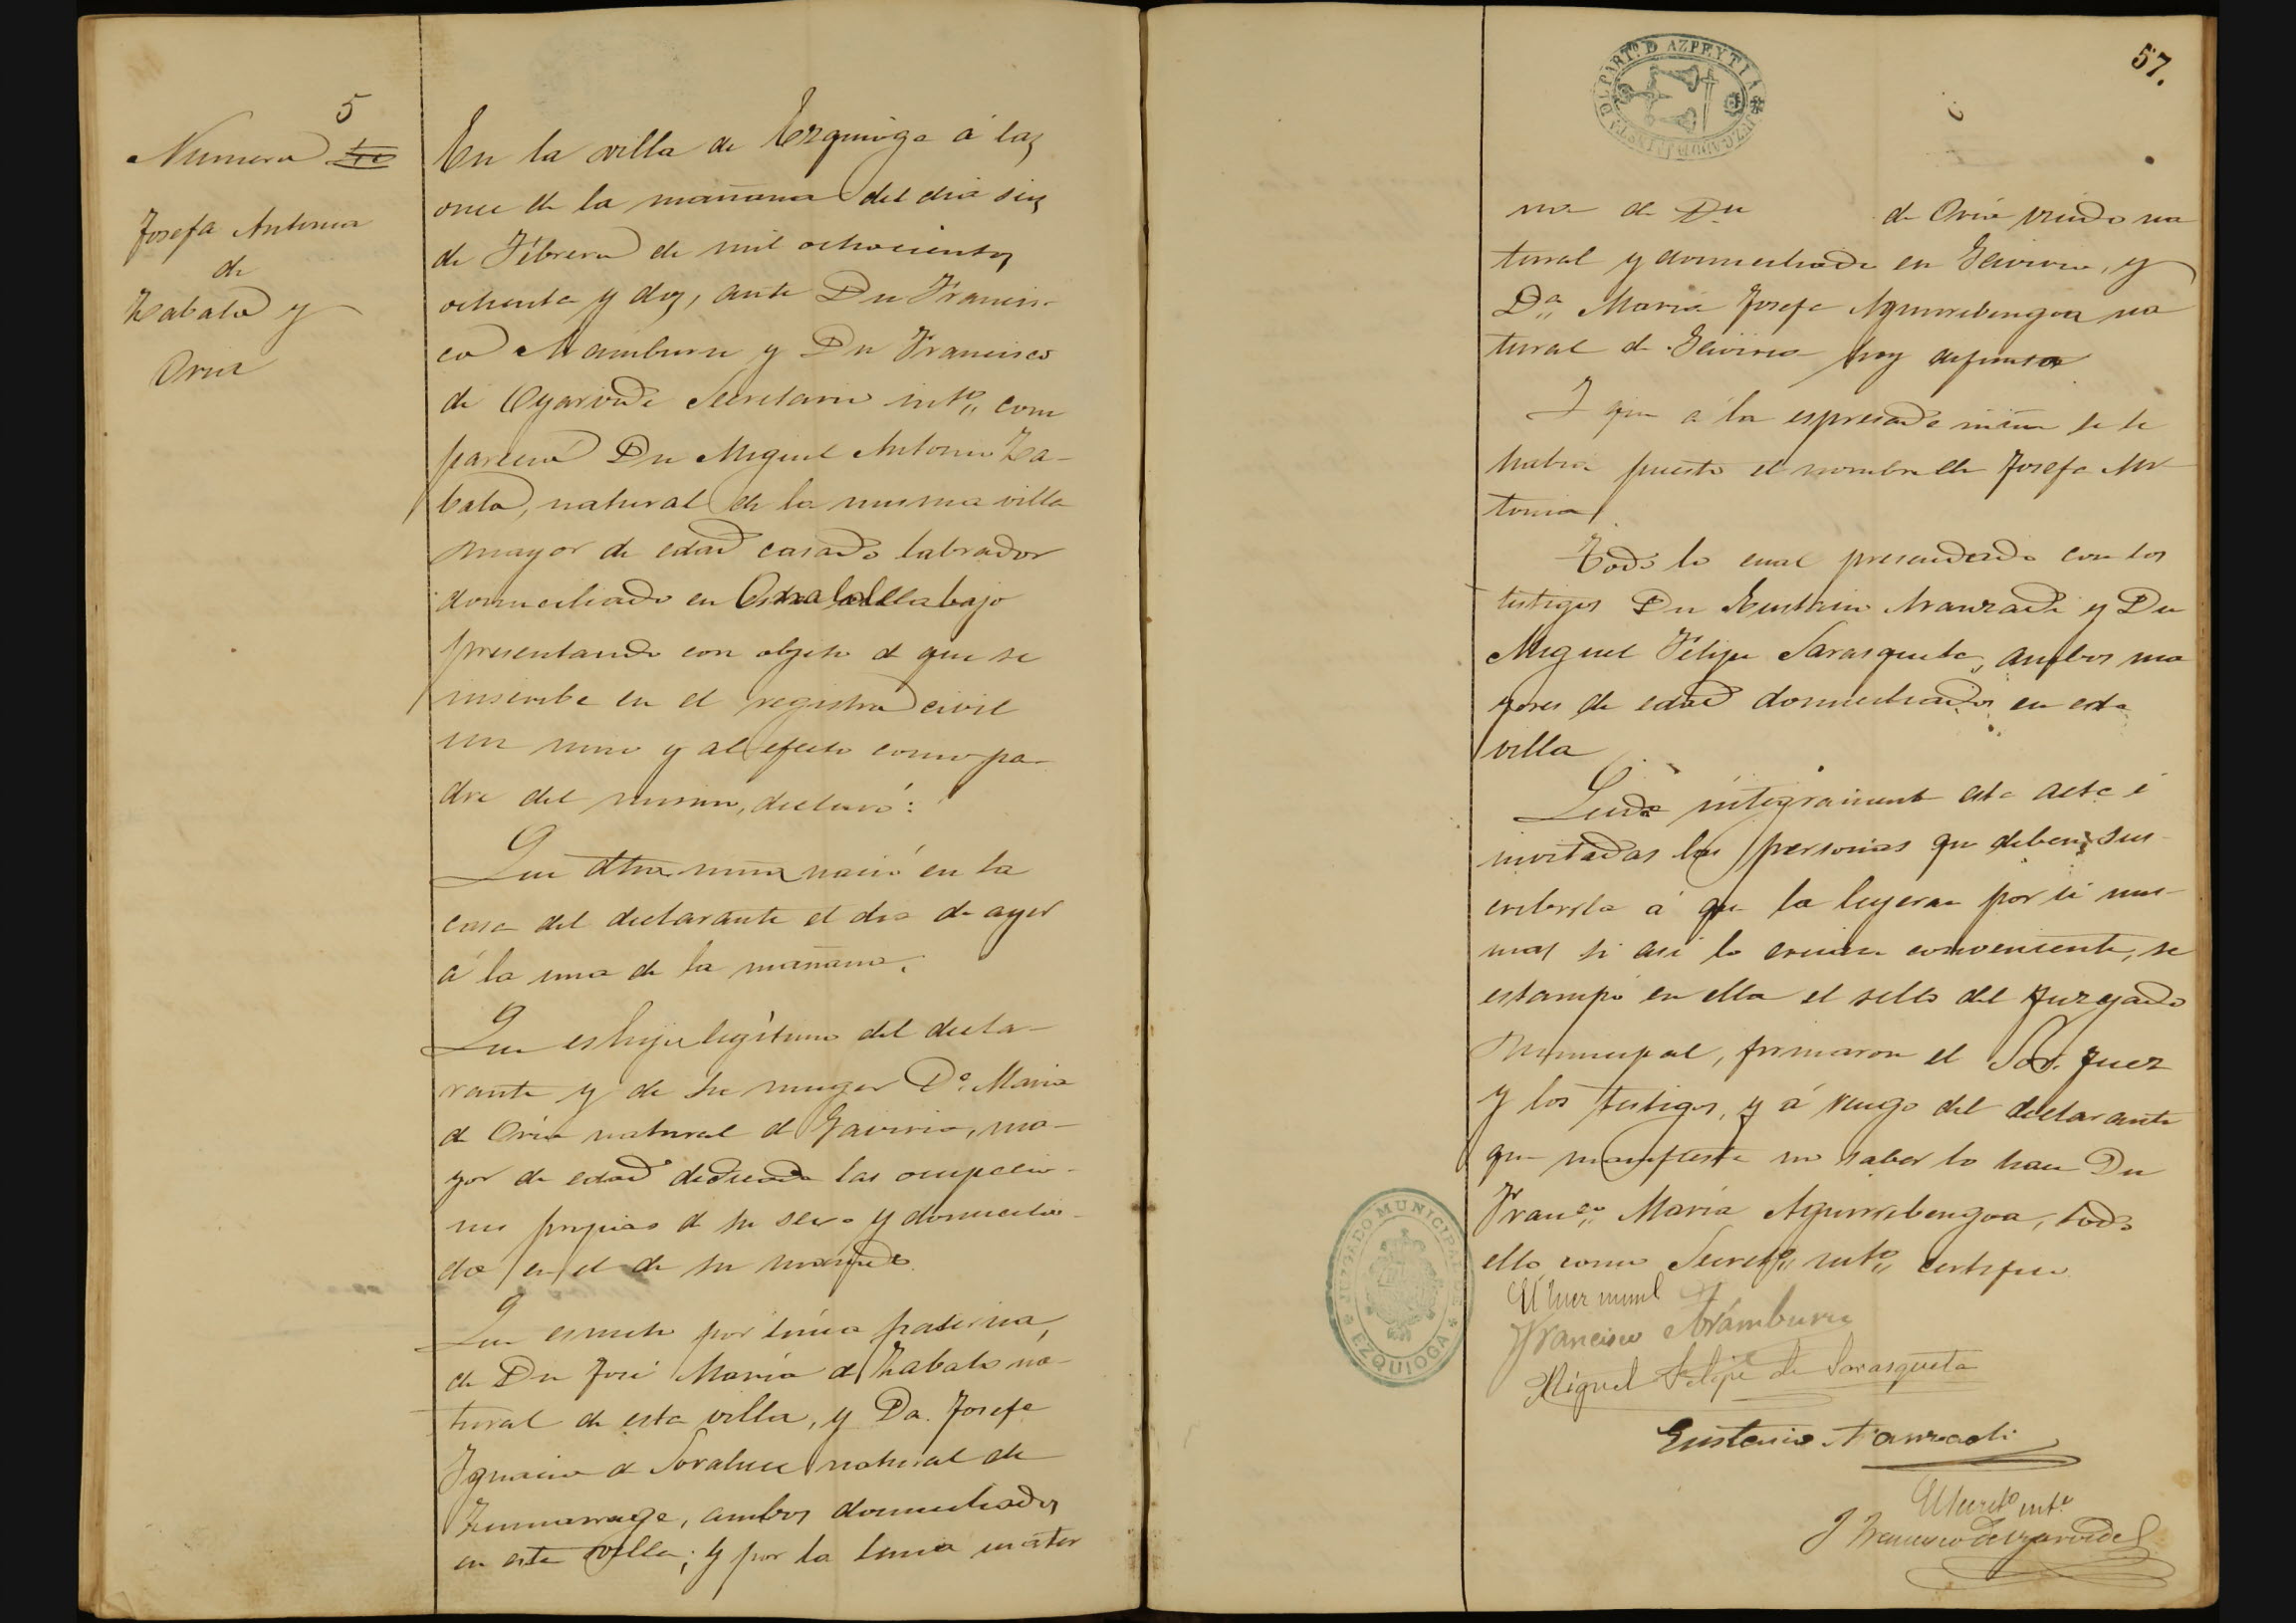 5
Numero
Josefa Antonia
de
Zabala y
Oria
En la villa de Ezquioga á las
once de la mañana del dia seis
de Febrero de mil ochocientos
ochenta y dos, ante Dn Francis-
co Aramburu y Dn Francisco
de Oyarvide Secretario intº, com
pareció Dn Miguel Antonio Za-
bala, natural de la misma villa
mayor de edad casado labrador
domiciliado en abajo
presentando con objeto de que se
inscriba en el registro civil
un niño y al efecto como pa-
dre del mismo, declaró:
Que dtha niña nació en la
casa del declarante el dia de ayer
á la una de la mañana.
Que es hija legítima del decla-
rante y de su muger Dª Maria
de Oria natural de Gaviria, ma-
yor de edad dedicada las ocupacio-
nes propias de su sexo y domicilia-
da en el de su marido.
Que es nieta por línea paterna,
de Dn José María de Zabala na-
tural de esta villa, y Da. Josefa
Ignacia de Soraluce natural de
Zumarraga, ambos domiciliados
en esta villa; y por la linea mater
57.
JUZGADO DE 1ª INSTª DEL PARTº D AZPEYTIA
na de Dn de Oria viudo na
tural y domiciliado en Gaviria, y
Dª Maria Josefa Aguirrebengoa na
tural de Gaviria hoy difunta
I que á la espresada niña se le
habia puesto el nombre de Josefa An
tonia
Todo lo cual presenciado con los
testigos Dn Eustasio Aranzadi y Dn
Miguel Felipe Sarasqueta, ambos ma
yores de edad domiciliados en esta
villa
Leida íntegramente esta acta é
invitadas las personas que deben sus-
cribirla á que la leyeran por si mis-
mas si asi lo creian conveniente, se
estampó en ella el sello del Juzgado
Municipal, firmaron el Sor. Juez
y los testigos, y á ruego del declarante
que manifiesta no saber lo hace Dn
Francº María Aguirrebengoa, todo
ello como Secretº intº certifico
El Juez munl
Francisco Arámburu
Miguel Felipe de Sarasqueta
Eustasio Aranzadi
El Secretº intº
Francisco de Oyarvide
JUZGADO MUNICIPAL DE EZQUIOGA